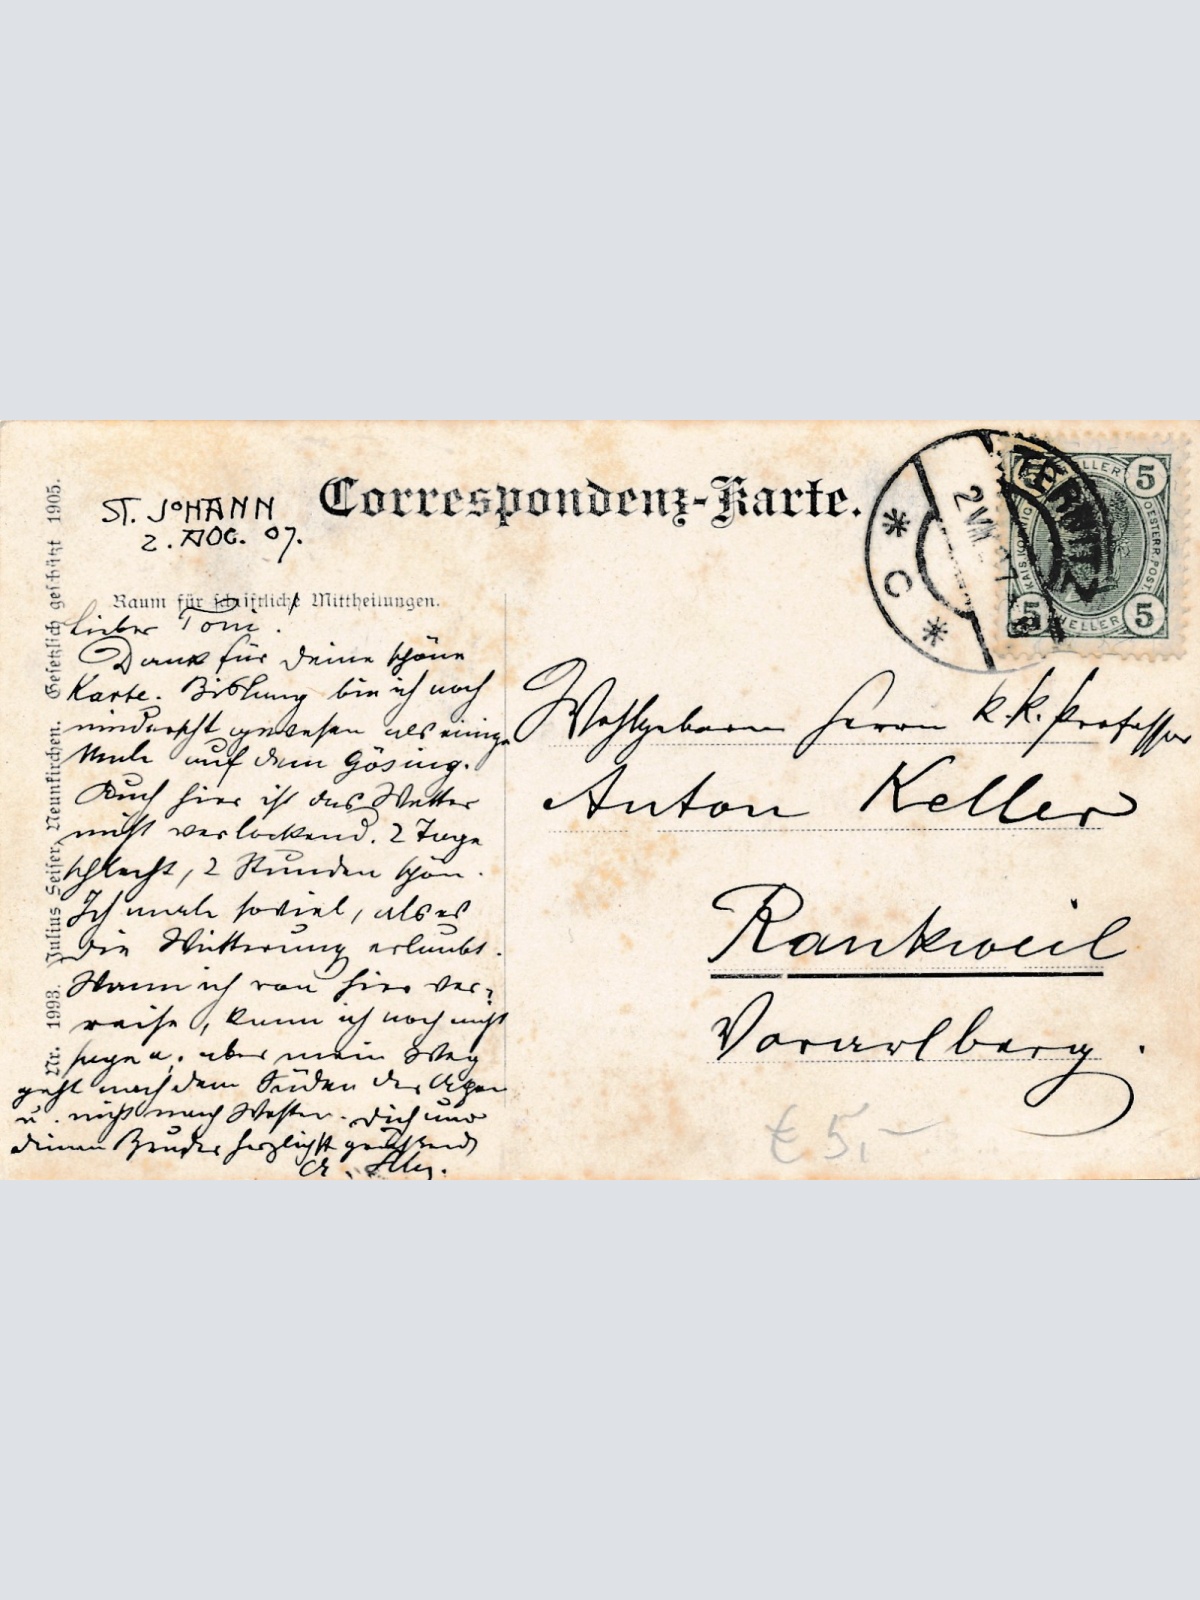 Correspondenz-Karte.
ST. JOHANN
2. AUG. 07.
Raum für schriftliche Mittheilungen.
Lieber Toni.
Dank für Deine schöne
Karte. Bislung bin ich noch
nirgends gewesen als einige
Male auf dem Gösing.
Auch hier ist das Wetter
nicht verlockend. 2 Tage
schlecht, 2 Stunden schön.
Ich male soviel, als es
die Witterung erlaubt.
Wann ich von hier ver-
reise, kann ich noch nicht
sagen, aber mein Weg
geht nach dem Süden der Alpen
u. nicht nach Westen. Dich und
deinen Bruder herzlichst grüßend
Wohlgeboren Herrn k.k. Professor
Anton Keller
Rankweil
Vorarlberg.
€ 5,-
Nr. 1993. Julius Seiser, Neunkirchen. Gesetzlich geschützt 1905.
TERNITZ
2 VIII 07
* C *
5 HELLER 5
KAIS. KÖNIG. OESTERR. POST
5 HELLER 5